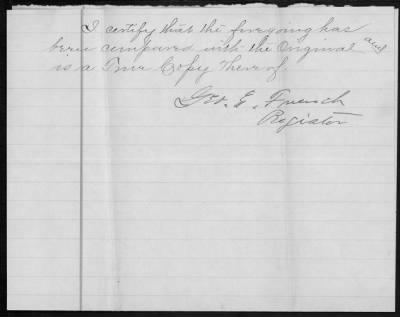 I certify that the foregoing has
been compared with the Original and
is a True Copy Thereof.
Geo. E. French
Register